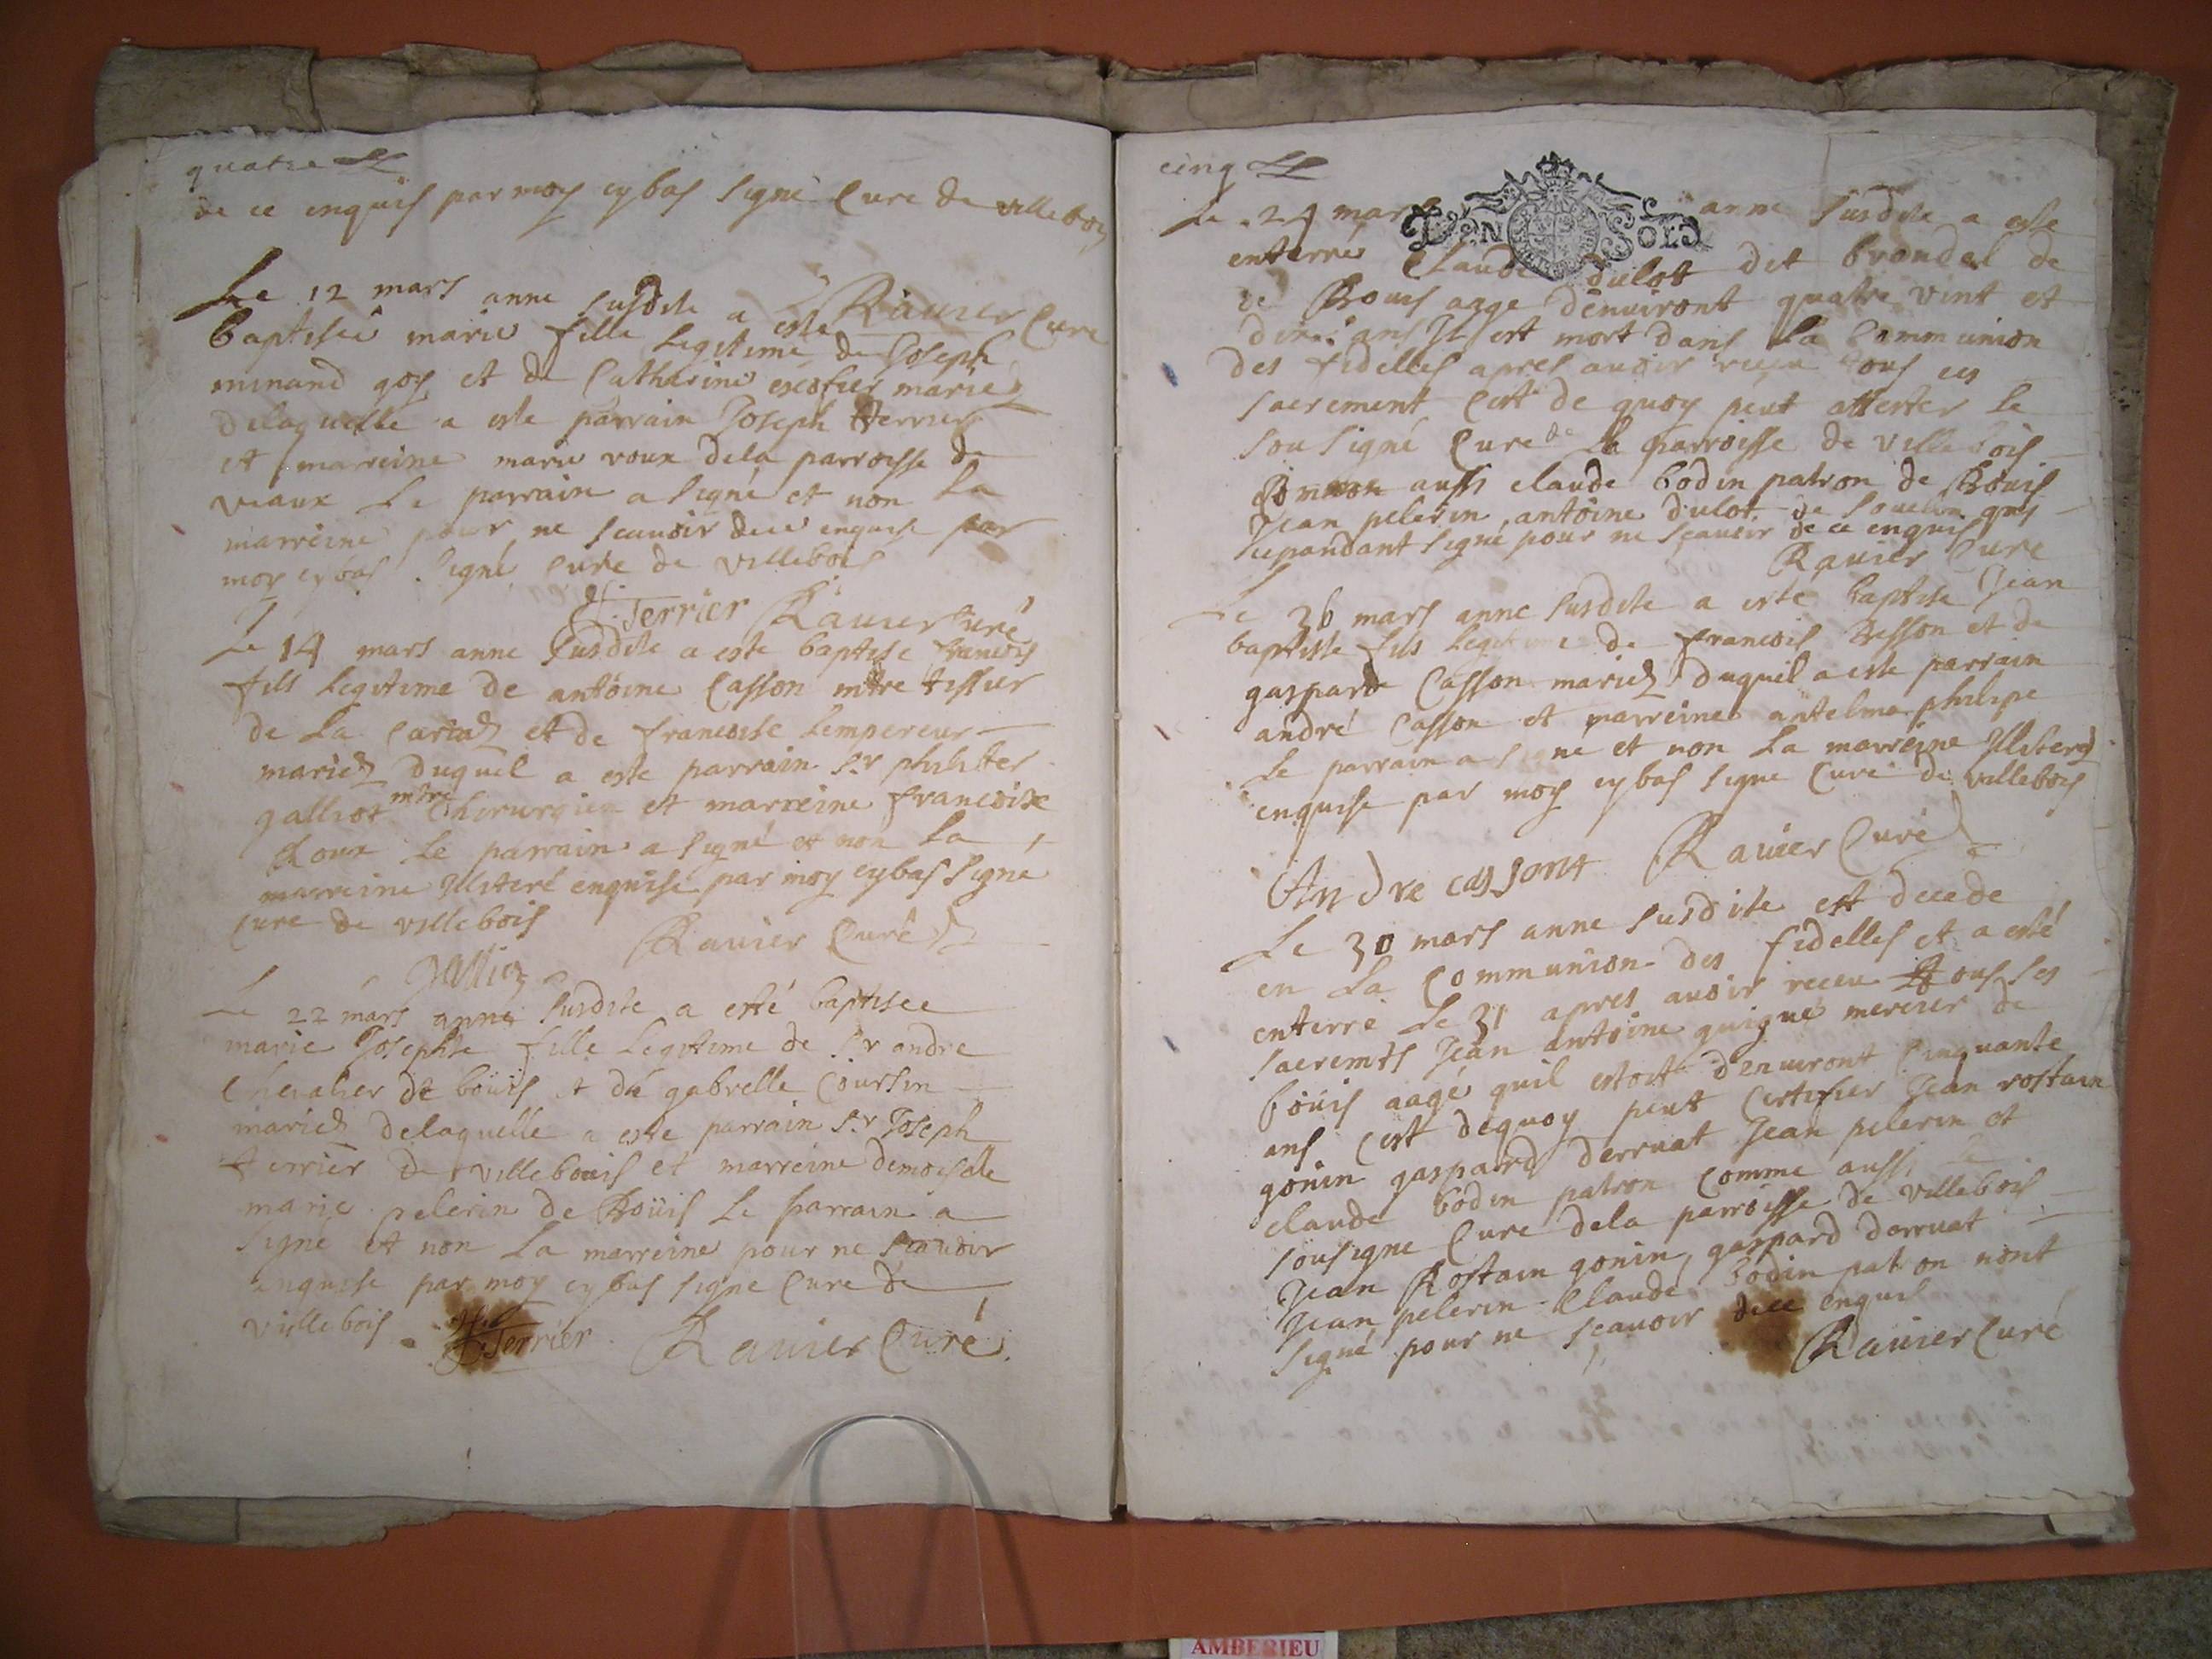 quatre
de ce enquis par moy cybas signé Curé de villebois
Ravier Curé
Le 12 mars anne susdite a este
baptisée marie fille legitime de Joseph
minand goy et de Catherine escofier mariez
delaquelle a este parrain Joseph terrier
et marreine marie roux dela parroisse de
vaux Le parrain a signé et non La
marreine pour ne scavoir dece enquise par
moy cybas signé Curé de villebois
J. Terrier Ravier Curé
Le 14 mars anne susdite a este baptisé francois
fils legitime de antoine Casson mtre tissier
de La et de francoise Lempereur
mariez duquel a este parrain Sr philiber
galliot mtre Chirurgien et marreine francoise
Roux Le parrain a signé et non La
marreine Illiteré enquise par moy cybas signé
Curé de villebois
Ravier Curé
Le 22 mars anne susdite a esté baptisee
marie Josephte fille Legitime de Sr andre
Chevalier de boüis et de gabrielle Coursin
mariez delaquelle a este parrain Sr Joseph
terrier de villebouis et marreine demoiselle
marie pelerin de Boüis Le parrain a
signé et non La marreine pour ne scavoir
enquise par moy cybas signé Curé de
villebois
J. Terrier Ravier Curé
cinq
DEN SOLS
Le 24 mars anne susdite a este
enterré Claude dulot dit brondel de
de Bouis aage denviront quatre vint et
dix ans Il est mort dans La Communion
des fidelles apres avoir receu tous ces
sacrement Cest de quoy peut attester le
sousigné Curé de La parroisse de villebois
Comme aussi claude bodin patron de Bouis
Jean pelerin, antoine dulot de
cepandant signé pour ne scavoir de ce enquis
Ravier Curé
Le 26 mars anne susdite a esté baptisé Jean
baptiste fils legitime de francois Besson et de
gasparde Casson mariez duquel a este parrain
andré Casson et marreine antelma philipe
Le parrain a signé et non La marreine Illiteré
enquise par moy cybas signé Curé de villebois
Andre cassont Ravier Curé
Le 30 mars anne susdite est decede
en La Communion des fidelles et a esté
enterré Le 31 apres avoir receu tous ses
sacremts Jean antoine guigue mercier de
boüis aagé quil estoit denviront Cinquante
ans Cest dequoy peut Certifier Jean rostain
gonin gaspard derruat Jean pelerin et
claude bodin patron Comme aussi le
sousigné Curé dela parroisse de villebois
Jean Rostain gonin, gaspard derruat
Jean pelerin Claude bodin patron nont
signé pour ne scavoir dece enquis
Ravier Curé
AMBERIEU